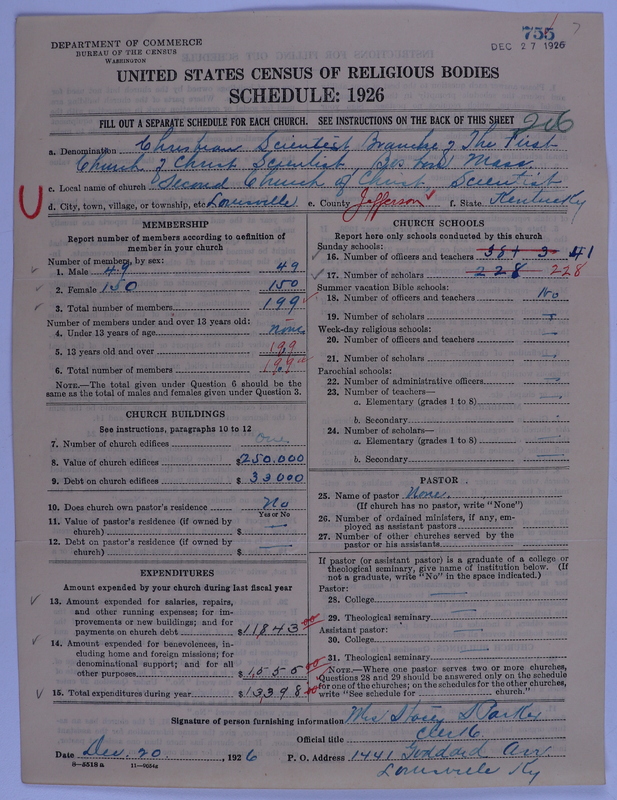 DEPARTMENT OF COMMERCE
BUREAU OF THE CENSUS
WASHINGTON
755
DEC 27 1926
UNITED STATES CENSUS OF RELIGIOUS BODIES
SCHEDULE: 1926
FILL OUT A SEPARATE SCHEDULE FOR EACH CHURCH. SEE INSTRUCTIONS ON THE BACK OF THIS SHEET
206
a. Denomination Christian Scientist Branche of The First
Church of Christ Scientist, Boston Mass.
c. Local name of church Second Church of Christ, Scientist
d. City, town, village, or township, etc Louisville e. County Jefferson f. State Kentucky
MEMBERSHIP
Report number of members according to definition of
member in your church
Number of members, by sex:
1. Male 49 49
2. Female 150 150
3. Total number of members 199
Number of members under and over 13 years old:
4. Under 13 years of age none
5. 13 years old and over 199
6. Total number of members 199
NOTE.—The total given under Question 6 should be the
same as the total of males and females given under Question 3.
CHURCH BUILDINGS
See instructions, paragraphs 10 to 12
7. Number of church edifices one
8. Value of church edifices $250.000
9. Debt on church edifices $33000
10. Does church own pastor's residence No
Yes or No
11. Value of pastor's residence (if owned by
church) $ —
12. Debt on pastor's residence (if owned by
church) $ —
EXPENDITURES
Amount expended by your church during last fiscal year
13. Amount expended for salaries, repairs,
and other running expenses; for im-
provements or new buildings; and for
payments on church debt $11,843 00
14. Amount expended for benevolences, in-
cluding home and foreign missions; for
denominational support; and for all
other purposes $1,555 00
15. Total expenditures during year $13,398 00
CHURCH SCHOOLS
Report here only schools conducted by this church
Sunday schools:
16. Number of officers and teachers 41
17. Number of scholars 228 228
Summer vacation Bible schools:
18. Number of officers and teachers No
19. Number of scholars —
Week-day religious schools:
20. Number of officers and teachers —
21. Number of scholars —
Parochial schools:
22. Number of administrative officers —
23. Number of teachers—
a. Elementary (grades 1 to 8) —
b. Secondary
24. Number of scholars—
a. Elementary (grades 1 to 8) —
b. Secondary —
PASTOR
25. Name of pastor None
(If church has no pastor, write "None")
26. Number of ordained ministers, if any, em-
ployed as assistant pastors
27. Number of other churches served by the
pastor or his assistants
If pastor (or assistant pastor) is a graduate of a college or
theological seminary, give name of institution below. (If
not a graduate, write "No" in the space indicated.)
Pastor:
28. College —
29. Theological seminary —
Assistant pastor:
30. College —
31. Theological seminary —
NOTE.—Where one pastor serves two or more churches,
Questions 28 and 29 should be answered only on the schedule
for one of the churches; on the schedules for the other churches,
write "See schedule for church."
Signature of person furnishing information Mrs Parker
Official title Clerk
Date Dec. 20, 1926 P. O. Address 1441 Goddard Ave
Louisville Ky
8—5518a 11—9054c